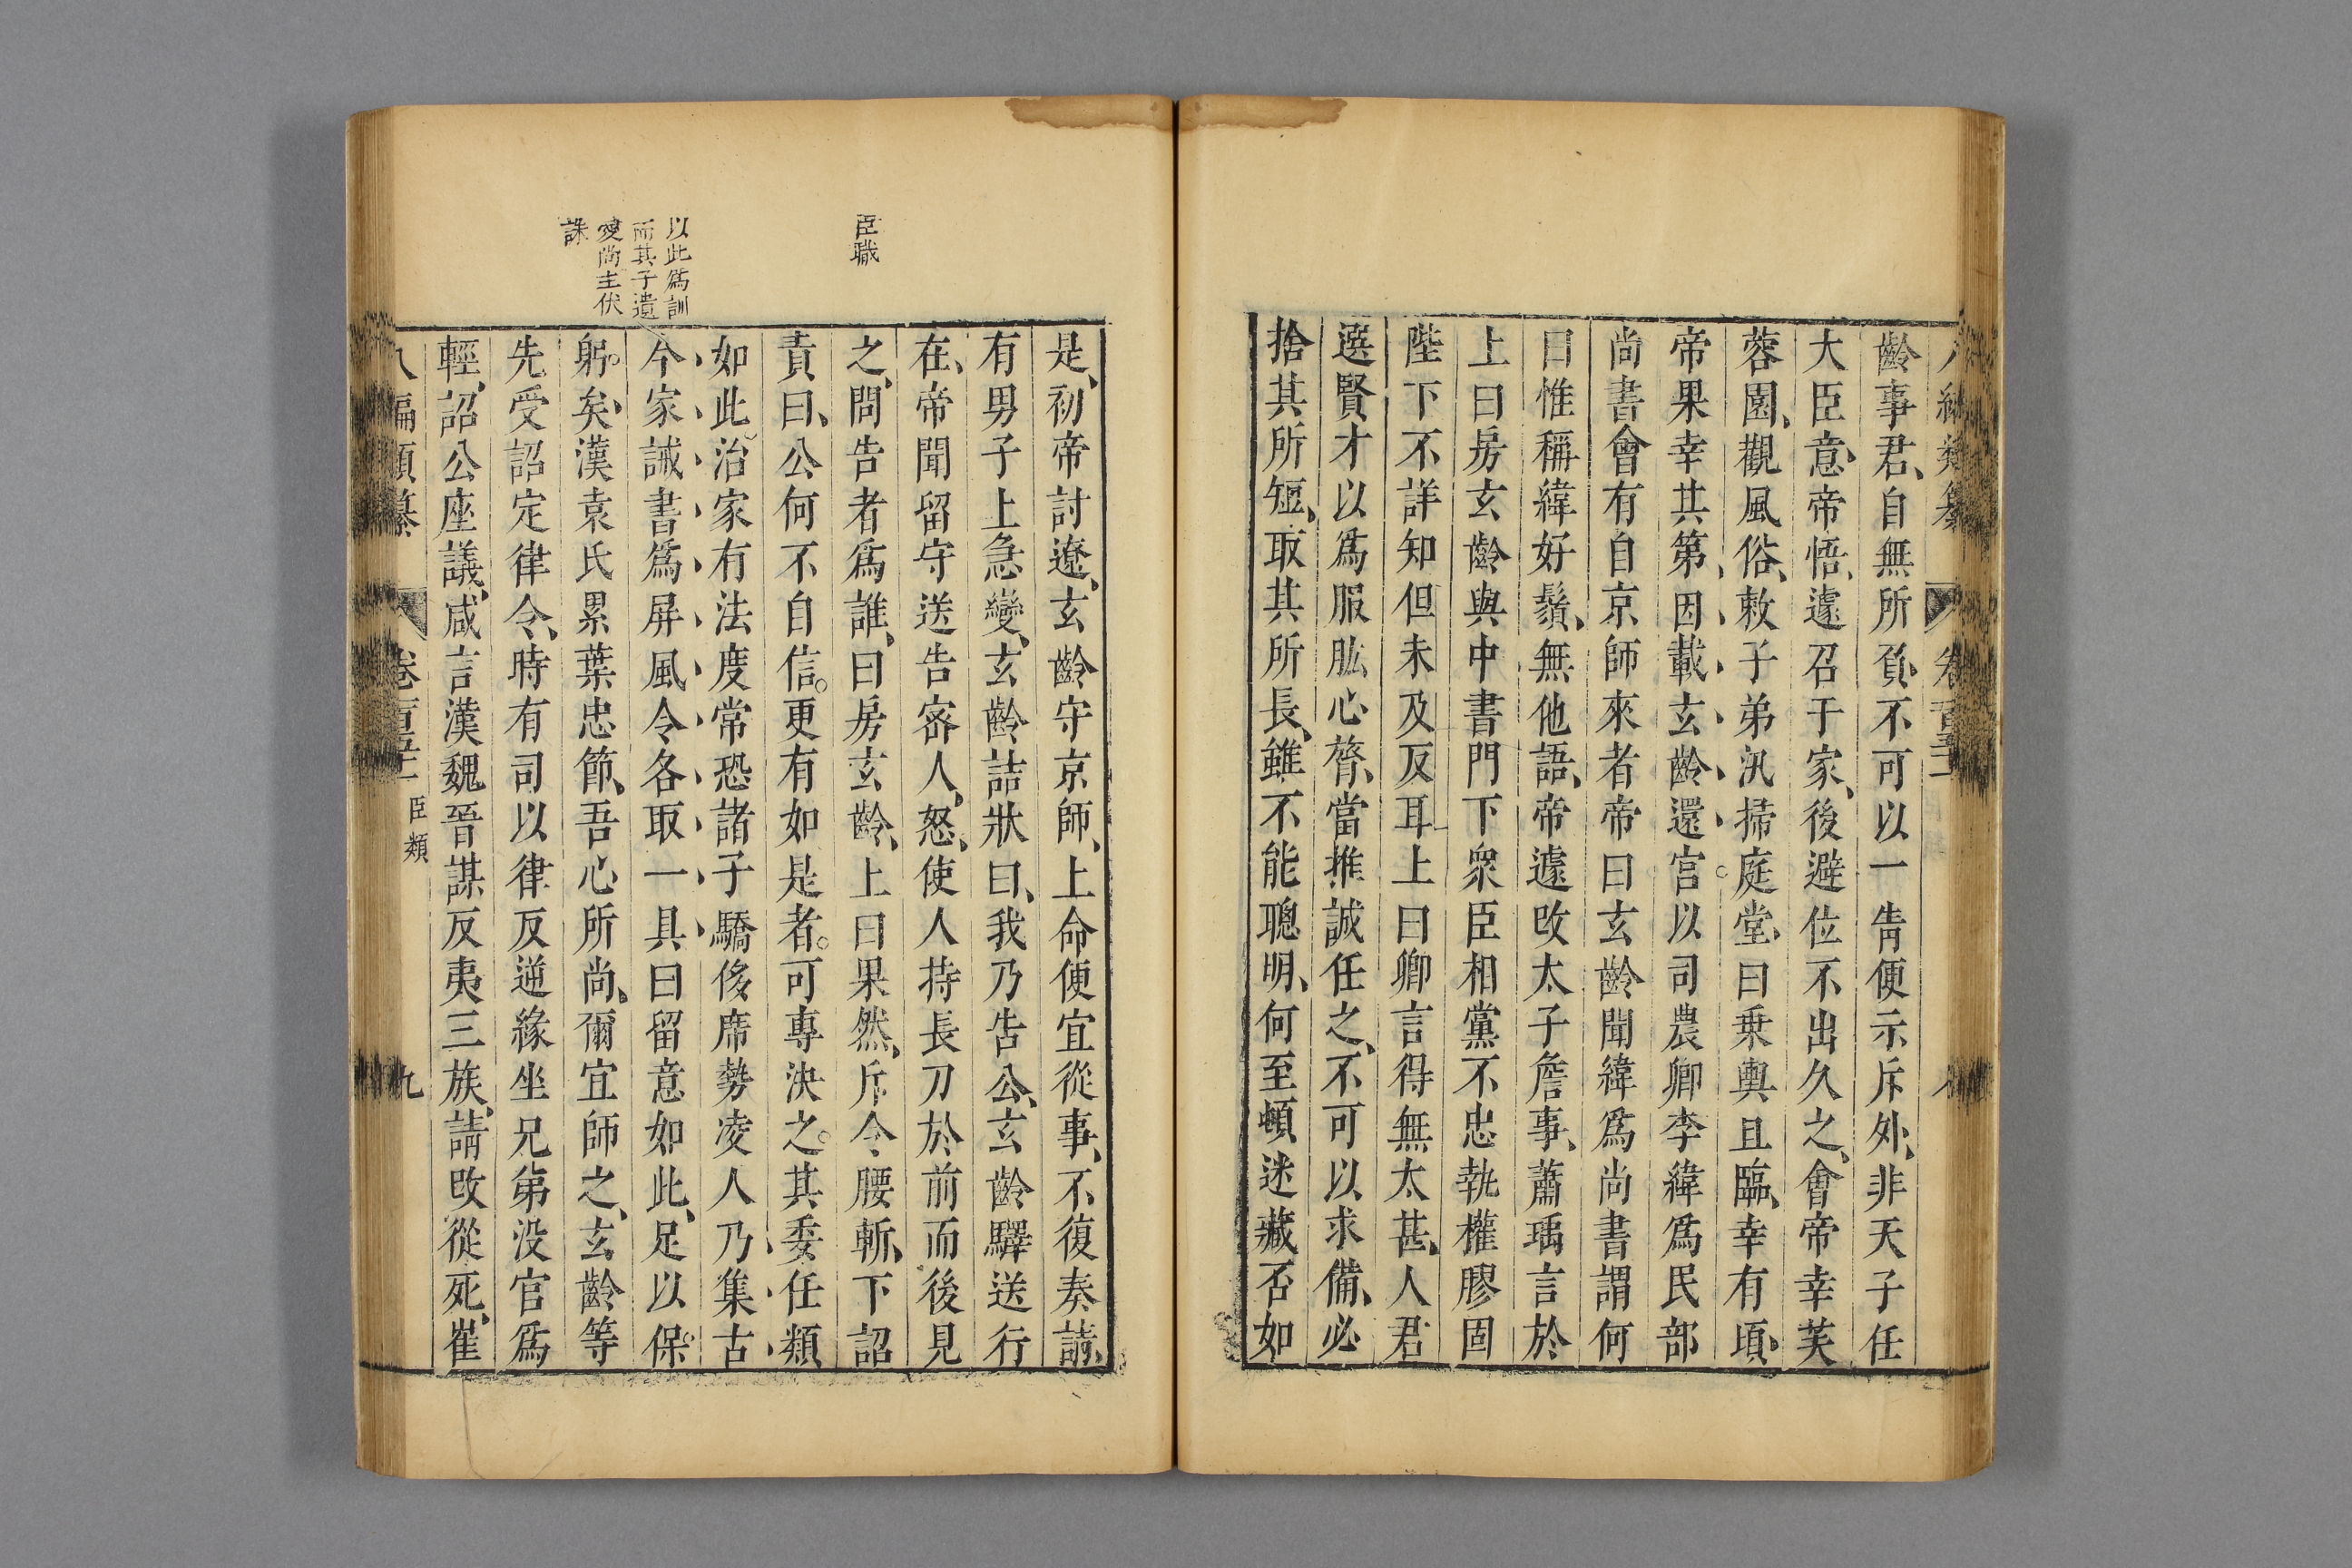 齡事君、自無所負、不可以一眚便示斥外、非天子任
大臣意、帝悟、遽召于家、後避位不出久之、會帝幸芙
蓉園、觀風俗、敕子弟汛掃庭堂、曰乗輿且臨、幸有頃、
帝果幸其第、因載玄齡還宫以司農卿李緯爲民部
尚書會有自京師來者帝曰玄齡聞緯爲尚書謂何
曰惟稱緯好鬚、無他語、帝遽改太子詹事、蕭瑀言於
上曰房玄齡與中書門下衆臣相黨不忠執權膠固
陛下不詳知但未及反耳上曰卿言得無太甚、人君
選賢才以爲服肱心膂、當推誠任之、不可以求備、必
捨其所短、取其所長、雖不能聰明、何至頓迷藏否如
是、初帝討遼、玄齡守京師、上命便宜從事、不復奏請、
有男子上急變、玄齡詰狀曰、我乃告公、玄齡驛送行
在、帝聞留守送告密人、怒、使人持長刀於前而後見
之、問告者爲誰、曰房玄齡、上曰果然、斥令腰斬、下詔
責曰、公何不自信。更有如是者。可專決之。其委任類
如此治家有法度常恐諸子驕侈席勢凌人乃集古
今家誡書爲屏風令各取一具曰留意如此、足以保
躬。矣漢袁氏累葉忠節、吾心所尚、爾宜師之、玄齡等
先受詔定律令、時有司以律反逆緣坐兄弟没官爲
輕、詔公座議、咸言漢魏晉謀反夷三族、請改從死、崔
八編類纂 卷百五二 臣類 九
臣職
以此爲訓
而其子遺
愛尚主伏
誅